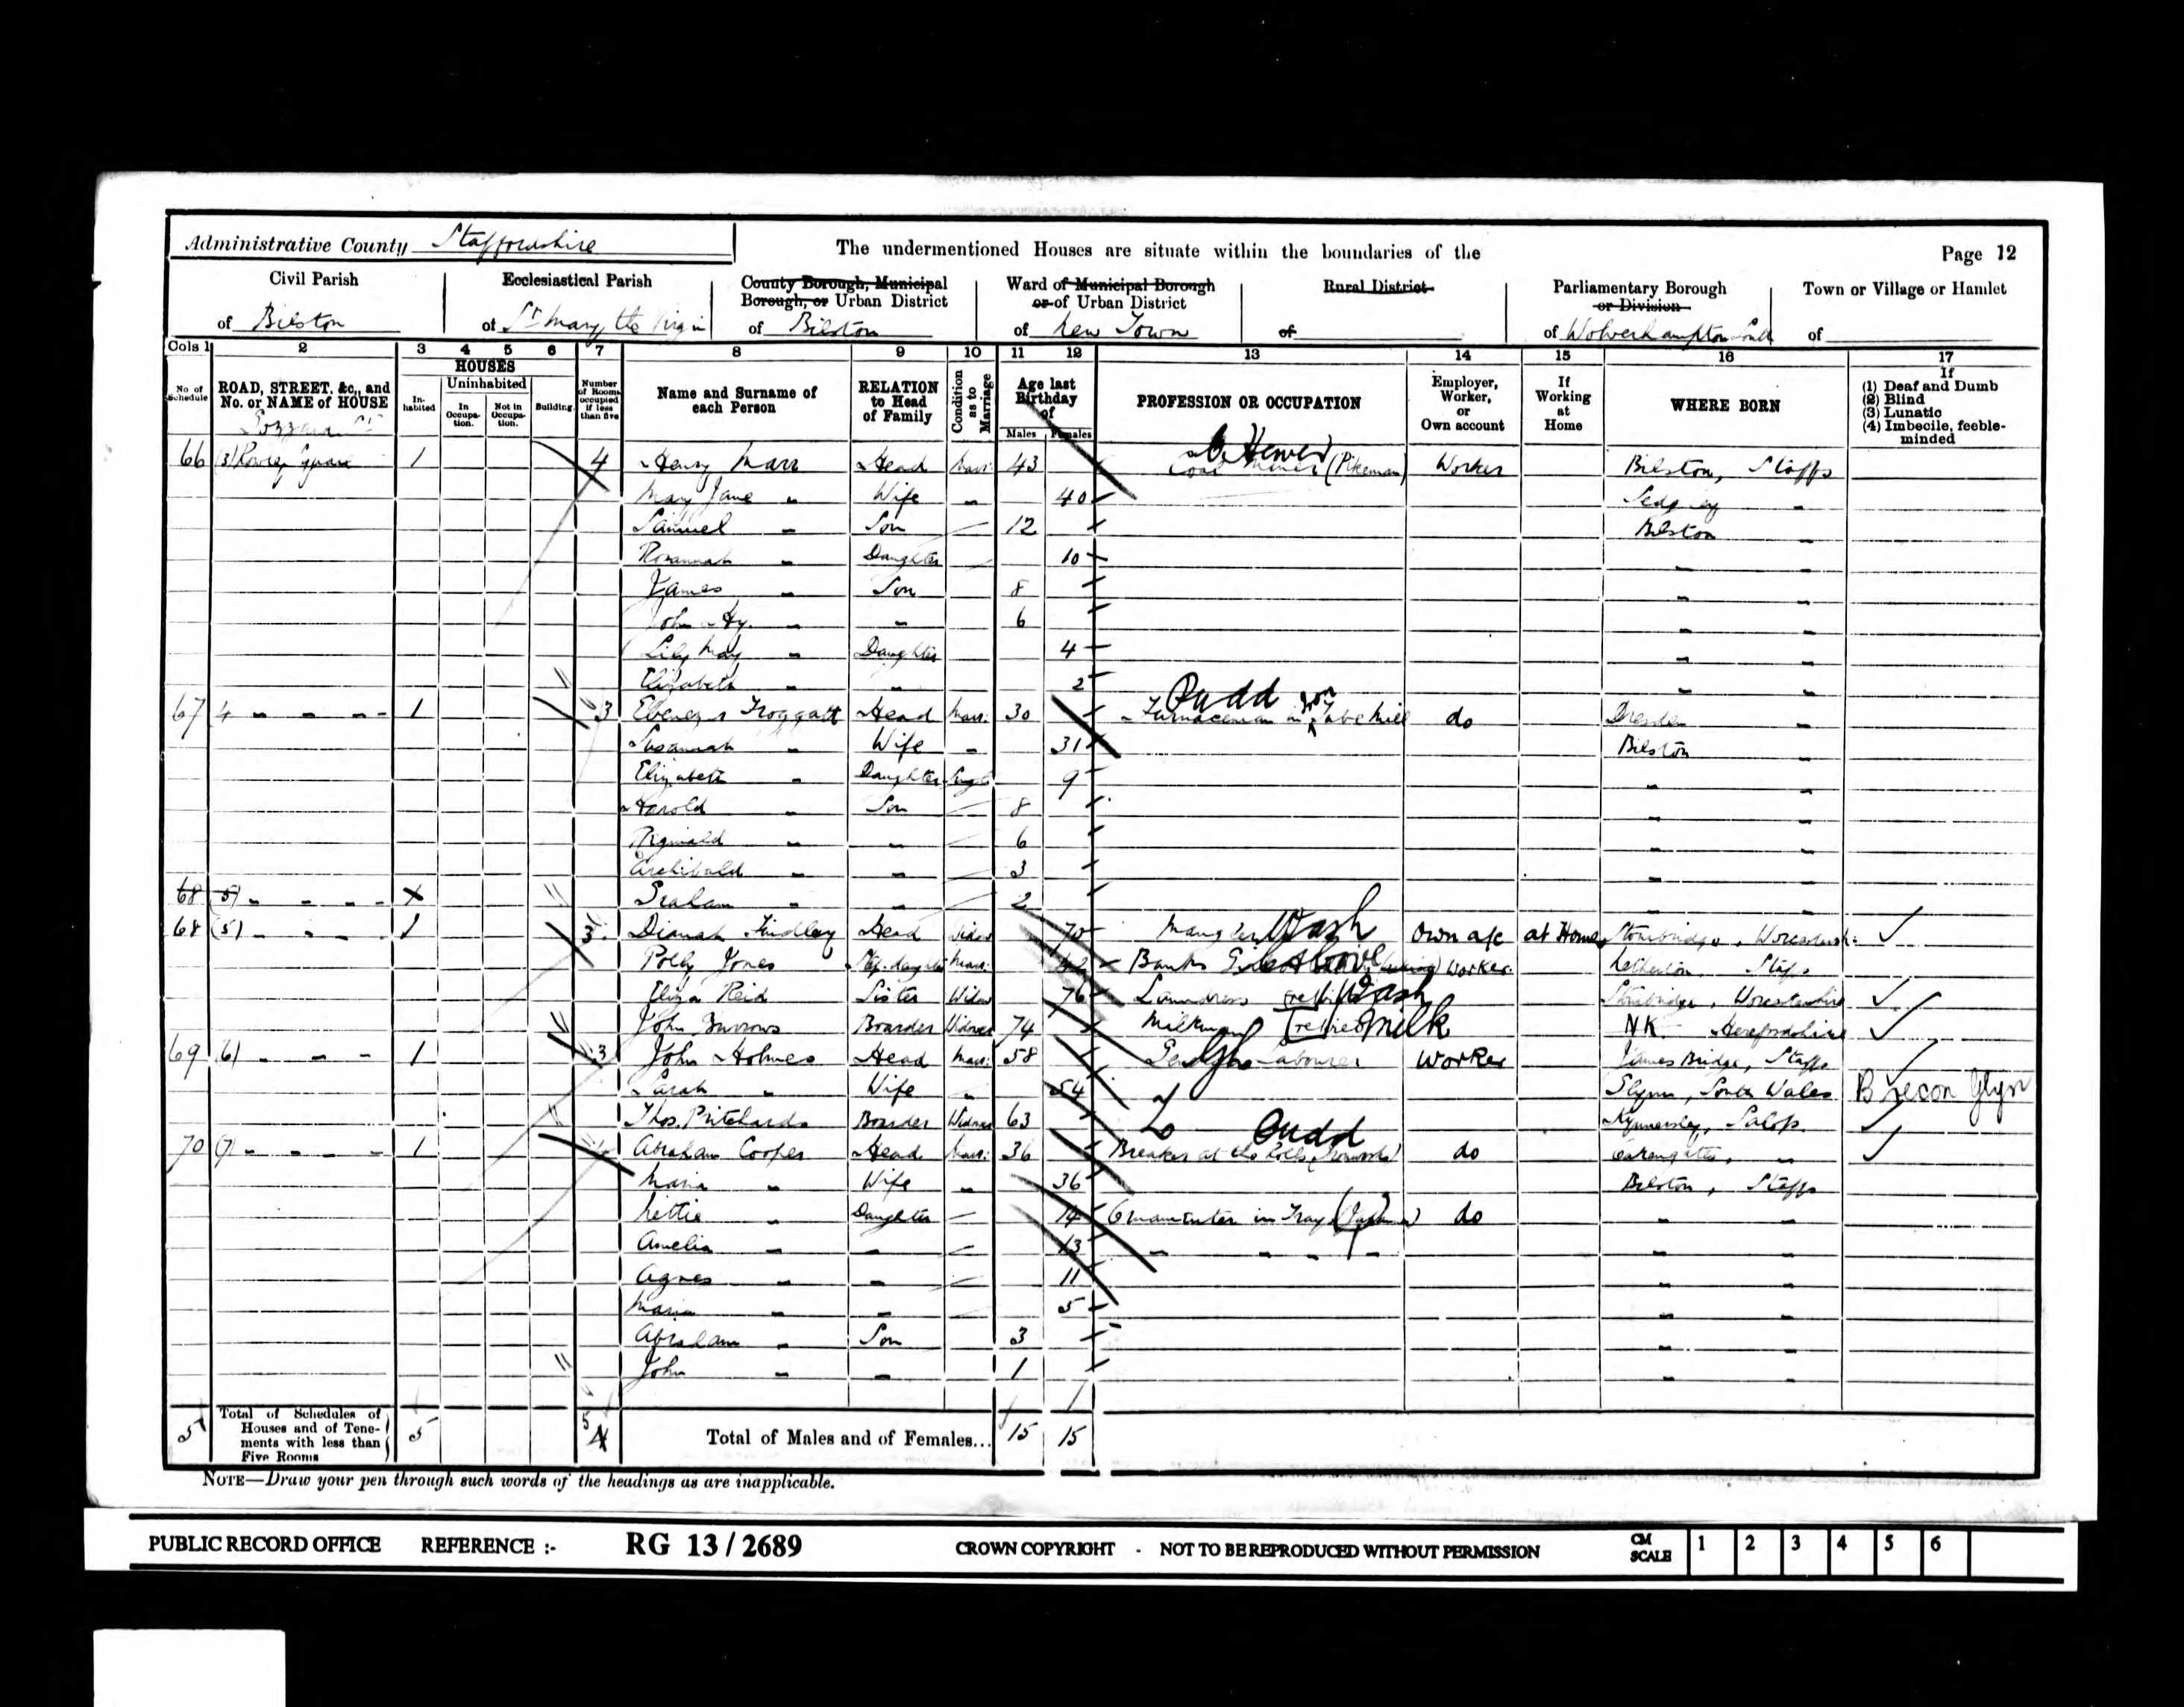 Administrative County Staffordshire
The undermentioned Houses are situate within the boundaries of the
Page 12
Civil Parish of Bilston
Ecclesiastical Parish of St Mary the Virgin
County Borough, Municipal Borough, or Urban District of Bilston
Ward of Municipal Borough or of Urban District of New Town
Rural District of
Parliamentary Borough or Division of Wolverhampton South
Town or Village or Hamlet of
Cols 1 2 3 4 5 6 7 8 9 10 11 12 13 14 15 16 17
No of Schedule
ROAD, STREET, &c., and No. or NAME of HOUSE
HOUSES
In-habited
Uninhabited
In Occupa-tion.
Not in Occupa-tion.
Building.
Number of Rooms occupied if less than five
Name and Surname of each Person
RELATION to Head of Family
Condition as to Marriage
Age last Birthday of
Males Females
PROFESSION OR OCCUPATION
Employer, Worker, or Own account
If Working at Home
WHERE BORN
If (1) Deaf and Dumb (2) Blind (3) Lunatic (4) Imbecile, feeble-minded
66 (3) Square 1 4 Henry Marr Head Marr: 43 Hewer (Pikeman) Worker Bilston, Staffs
Mary Jane " Wife " 40 Sedgley "
Samuel " Son 12 Bilston "
Rosannah " Daughter 10 " "
James " Son 8 " "
John Hy. " " 6 " "
Lily May " Daughter 4 " "
Elizabeth " " 2 " "
67 4 " " " " 1 3 Ebenezer Froggatt Head Marr: 30 Pudd Furnaceman in Iron Tube Mill do Dresden "
Susannah " Wife " 31 Bilston "
Elizabeth " Daughter Single 9 " "
Harold " Son 8 " "
Reginald " " 6 " "
Archibald " " 3 " "
68 (5) " " " " x Graham " " 2 " "
68 (5) " " " 1 3 Dianah Findley Head Widow 70 Wash Own a/c at Home Stourbridge, Worcestersh:
Polly Jones Step-daughter Marr: Worker Staffs
Eliza Reid Sister Widow 76 Laundress [retired] Wash Stourbridge, Worcestershire
John Burrows Boarder Widower 74 Milkman [retired] Milk NK Herefordshire
69 (6) " " " 1 3 John Holmes Head Marr: 58 Labourer Worker James Bridge, Staffs
Sarah " Wife " 54 Glynn, South Wales Brecon Glyn
Thos. Pritchards Boarder Widower 63 Do Kynnersley, Salop.
70 (7) " " " 1 Abraham Cooper Head Marr: 36 Pudd Breaker at the Rolls (Ironworks) do Oakengates, "
Maria " Wife " 36 Bilston, Staffs
Lettie " Daughter 14 Ornamenter in Tray do " "
Amelia " " 13 " " " " " "
Agnes " " 11 " "
Maria " " 5 " "
Abraham " Son 3 " "
John " " 1 " "
5 Total of Schedules of Houses and of Tene-ments with less than Five Rooms 5 5 4 Total of Males and of Females... 15 15
NOTE—Draw your pen through such words of the headings as are inapplicable.
PUBLIC RECORD OFFICE REFERENCE :- RG 13 / 2689 CROWN COPYRIGHT - NOT TO BE REPRODUCED WITHOUT PERMISSION CM SCALE 1 2 3 4 5 6